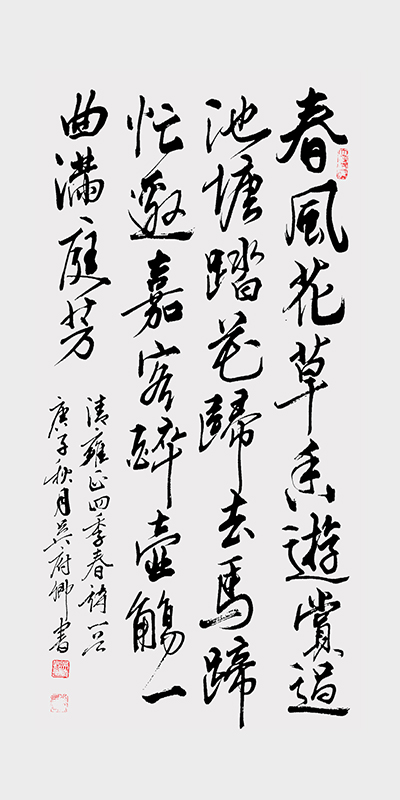 春風花草香遊賞過
池塘踏花歸去馬蹄
忙邀嘉客醉壺觴一
曲滿庭芳
清雍正四季春詩一首
庚子秋月吳府卿書